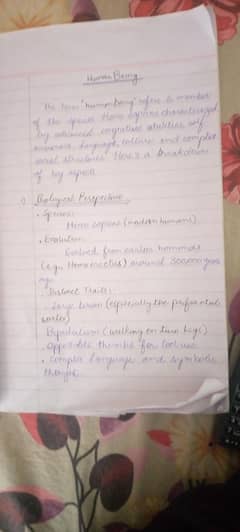 Human Being
The term 'human being' refers to member
of the species Homo sapiens characterized
by advanced cognitive abilities, self
awareness, language, culture and complex
social structures. Here's a breakdown
of key aspects
1) Biological Perspective
• Species:
Homo sapiens (modern humans)
• Evolution:
Evolved from earlier hominids
(e.g., Homo erectus) around 300,000 years
ago
• Distinct Traits:
Large brain (especially the prefrontal
cortex)
Bipedalism (walking on two legs)
• Opposable thumbs for tool use
• complex language and symbolic
thought